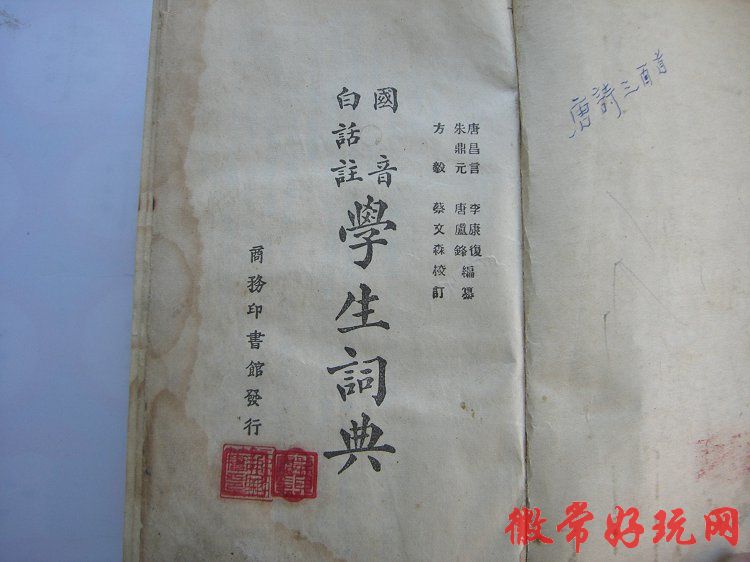 唐詩三百首
唐昌言 李康復
朱鼎元 唐盧鋒 編纂
方毅 蔡文森校訂
國音
白話註
學生詞典
商務印書館發行
徽常好玩网